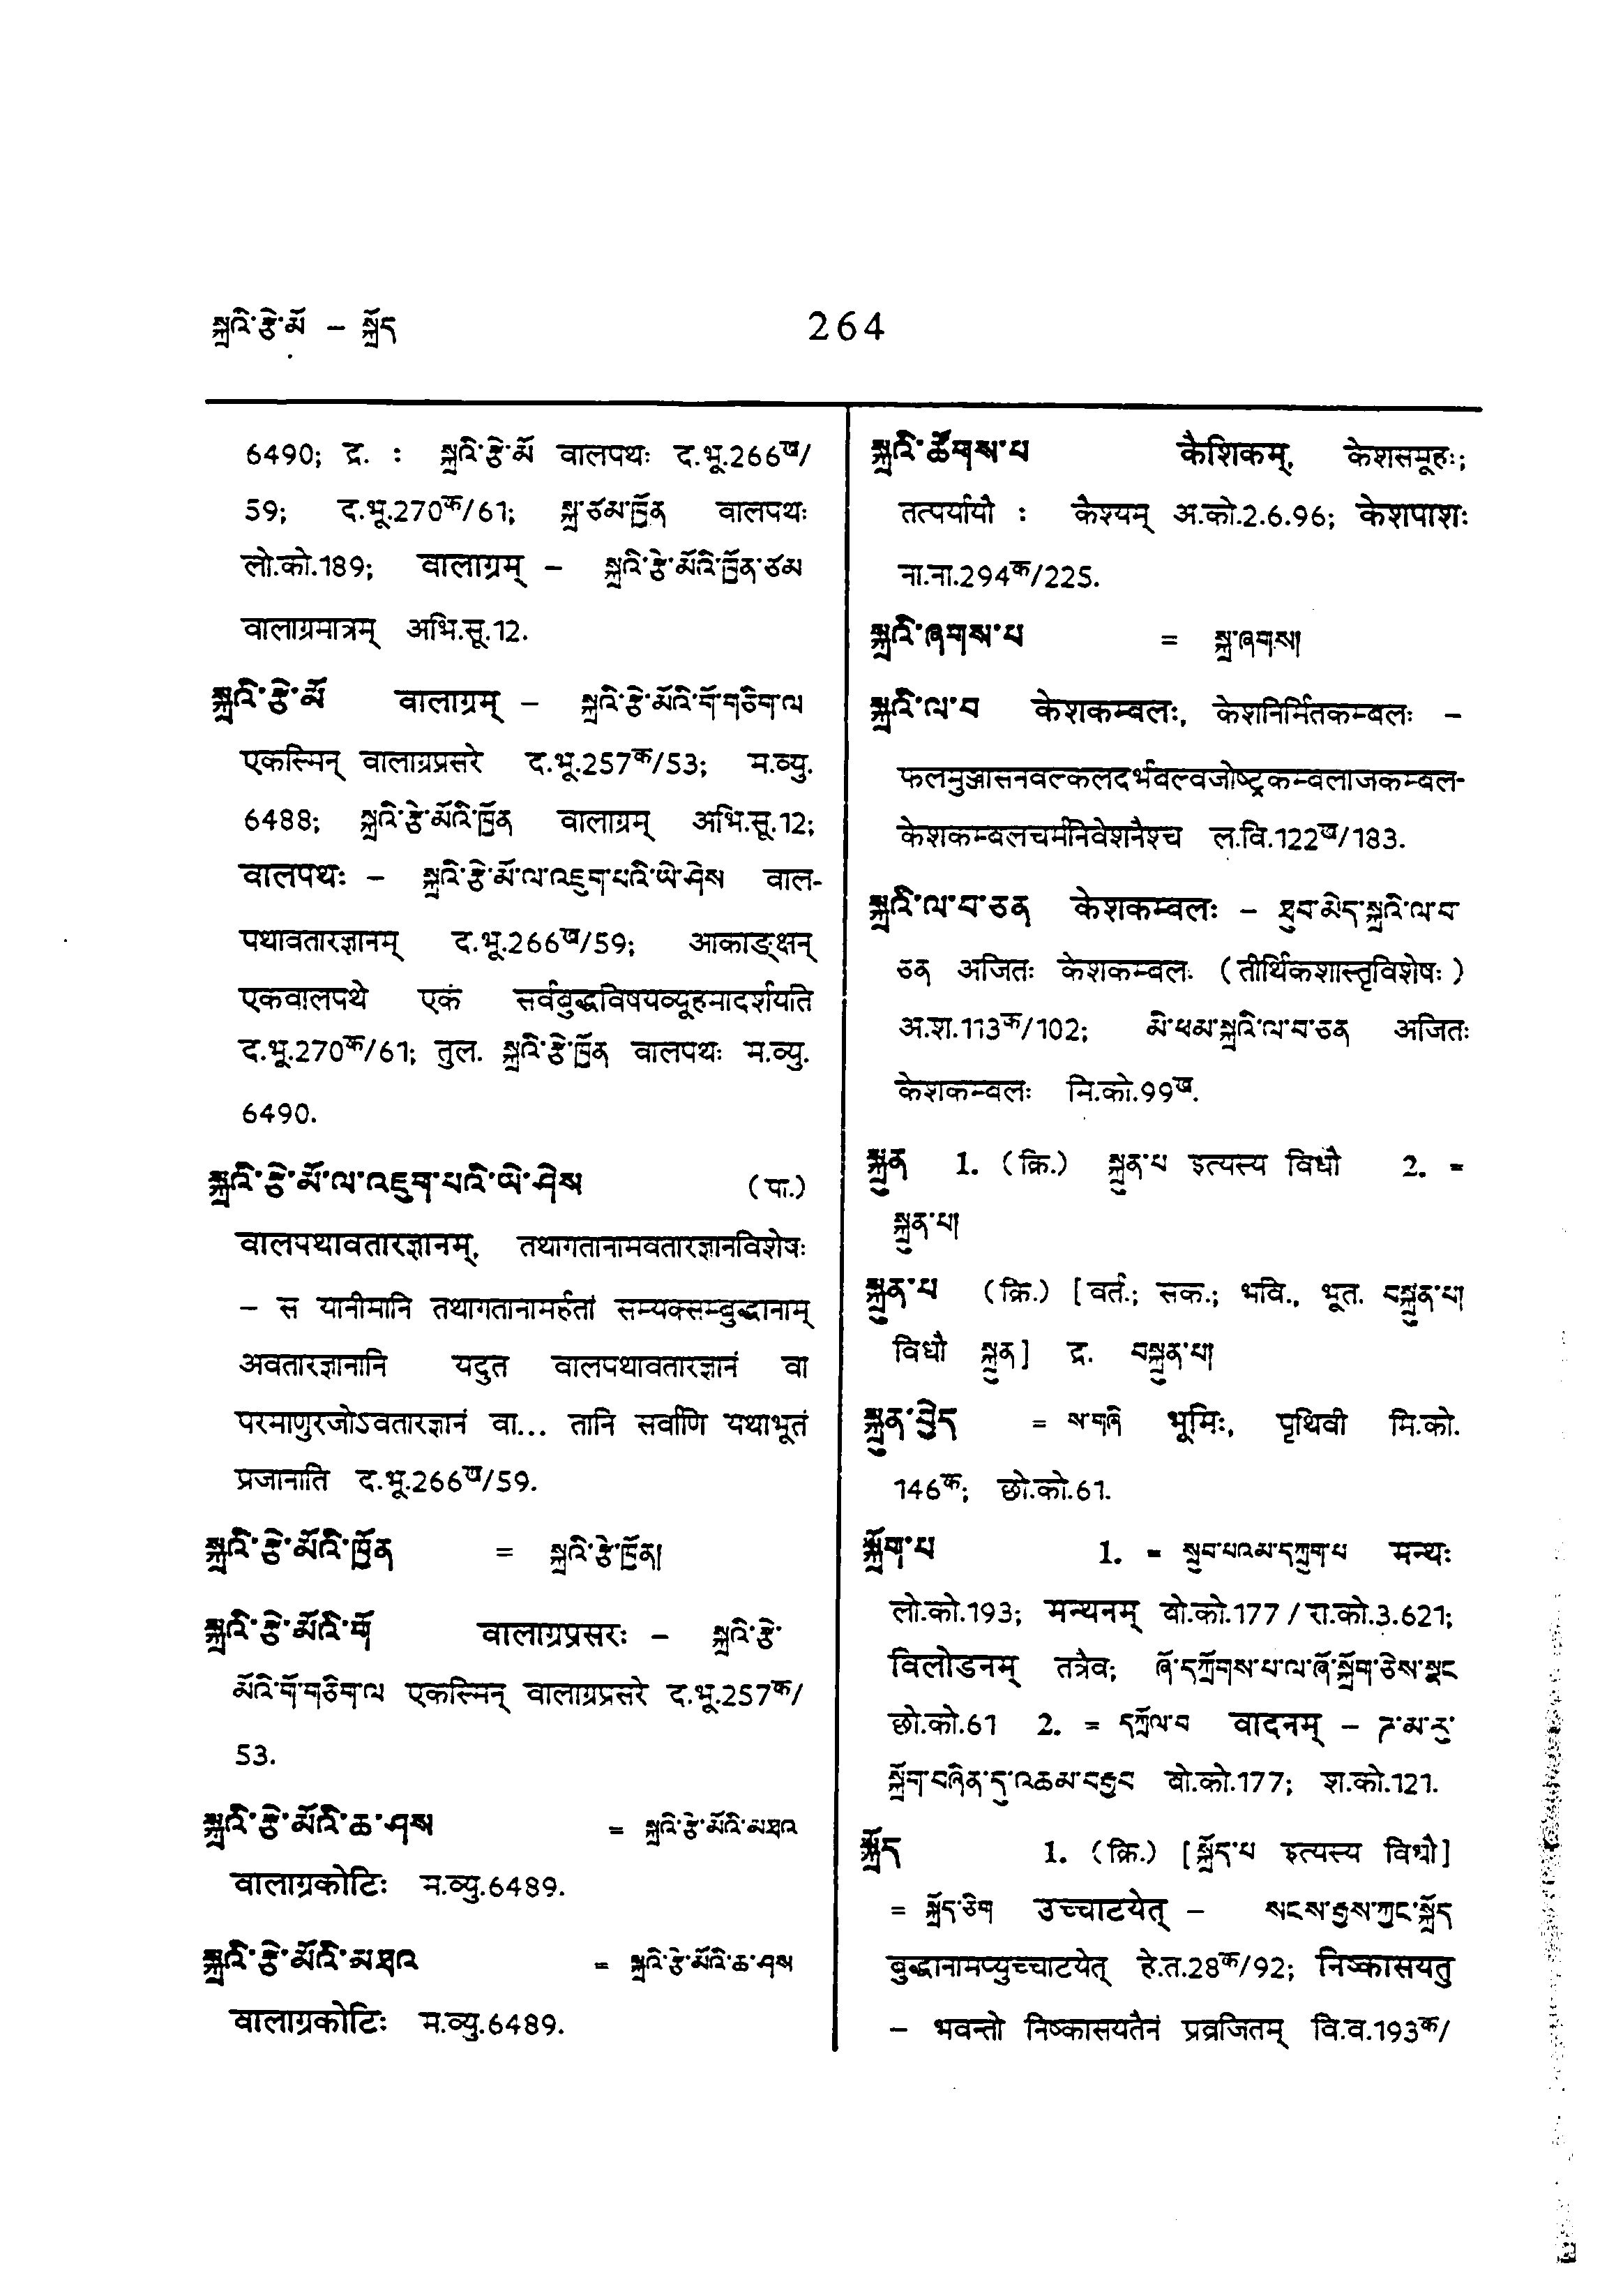 སྐྲའི་རྩེ་མོ – སྐྲོད
264
6490; द्र. : སྐྲའི་རྩེ་མོ वालपथः द.भू.266ख/
59; द.भू.270क/61; སྐྲ་ཙམ་ཁྲོན वालपथः
लो.को.189; वालाग्रम् – སྐྲའི་རྩེ་མོའི་ཁྲོན་ཙམ
वालाग्रमात्रम् अभि.सू.12.
སྐྲའི་རྩེ་མོ वालाग्रम् – སྐྲའི་རྩེ་མོའི་གོ་གཅིག་ལ
एकस्मिन् वालाग्रप्रसरे द.भू.257क/53; म.व्यु.
6488; སྐྲའི་རྩེ་མོའི་ཁྲོན वालाग्रम् अभि.सू.12;
वालपथः – སྐྲའི་རྩེ་མོ་ལ་འཇུག་པའི་ཡེ་ཤེས वाल-
पथावतारज्ञानम् द.भू.266ख/59; आकाङ्क्षन्
एकवालपथे एकं सर्वबुद्धविषयव्यूहमादर्शयति
द.भू.270क/61; तुल. སྐྲའི་རྩེ་ཁྲོན वालपथः म.व्यु.
6490.
སྐྲའི་རྩེ་མོ་ལ་འཇུག་པའི་ཡེ་ཤེས (पा.)
वालपथावतारज्ञानम्, तथागतानामवतारज्ञानविशेषः
– स यानीमानि तथागतानामर्हतां सम्यक्सम्बुद्धानाम्
अवतारज्ञानानि यदुत वालपथावतारज्ञानं वा
परमाणुरजोऽवतारज्ञानं वा... तानि सर्वाणि यथाभूतं
प्रजानाति द.भू.266ख/59.
སྐྲའི་རྩེ་མོའི་ཁྲོན = སྐྲའི་རྩེ་ཁྲོན།
སྐྲའི་རྩེ་མོའི་གོ वालाग्रप्रसरः – སྐྲའི་རྩེ་
མོའི་གོ་གཅིག་ལ एकस्मिन् वालाग्रप्रसरे द.भू.257क/
53.
སྐྲའི་རྩེ་མོའི་ཆ་ཤས = སྐྲའི་རྩེ་མོའི་མཐའ
वालाग्रकोटिः म.व्यु.6489.
སྐྲའི་རྩེ་མོའི་མཐའ = སྐྲའི་རྩེ་མོའི་ཆ་ཤས
वालाग्रकोटिः म.व्यु.6489.
སྐྲའི་ཚོགས་པ कैशिकम्, केशसमूहः;
तत्पर्यायौ : कैश्यम् अ.को.2.6.96; केशपाशः
ना.ना.294क/225.
སྐྲའི་ཞགས་པ = སྐྲ་ཞགས།
སྐྲའི་ལ་བ केशकम्बलः, केशनिर्मितकम्बलः –
फलमुञ्जासनवल्कलदर्भवल्वजोष्ट्रकम्बलाजकम्बल-
केशकम्बलचर्मनिवेशनैश्च ल.वि.122ख/183.
སྐྲའི་ལ་བ་ཅན केशकम्बलः – ཐུབ་མེད་སྐྲའི་ལ་བ
ཅན अजितः केशकम्बलः (तीर्थिकशास्तृविशेषः)
अ.श.113क/102; མི་ཕམ་སྐྲའི་ལ་བ་ཅན अजितः
केशकम्बलः मि.को.99ख.
སྐྲུན 1. (क्रि.) སྐྲུན་པ इत्यस्य विधौ 2. =
སྐྲུན་པ།
སྐྲུན་པ (क्रि.) [वर्त.; सक.; भवि., भूत. བསྐྲུན་པ།
विधौ སྐྲུན] द्र. བསྐྲུན་པ།
སྐྲུན་བྱེད = ས་གཞི भूमिः, पृथिवी मि.को.
146क; छो.को.61.
སྐྲོག་པ 1. = སྲུབ་པའམ་དཀྲུག་པ मन्थः
लो.को.193; मन्थनम् बो.को.177/रा.को.3.621;
विलोडनम् तत्रैव; ཞོ་དཀྲོགས་པ་ལ་ཞོ་སྐྲོག་ཅེས་སྣང
छो.को.61 2. = དཀྲོལ་བ वादनम् – ཌ་མ་རུ་
སྐྲོག་བཞིན་དུ་འཆམ་བརྒྱབ बो.को.177; श.को.121.
སྐྲོད 1. (क्रि.) [སྐྲོད་པ इत्यस्य विधौ]
= སྐྲོད་ཅིག उच्चाटयेत् – སངས་རྒྱས་ཀྱང་སྐྲོད
बुद्धानामप्युच्चाटयेत् हे.त.28क/92; निष्कासयतु
– भवन्तो निष्कासयतैनं प्रव्रजितम् वि.व.193क/